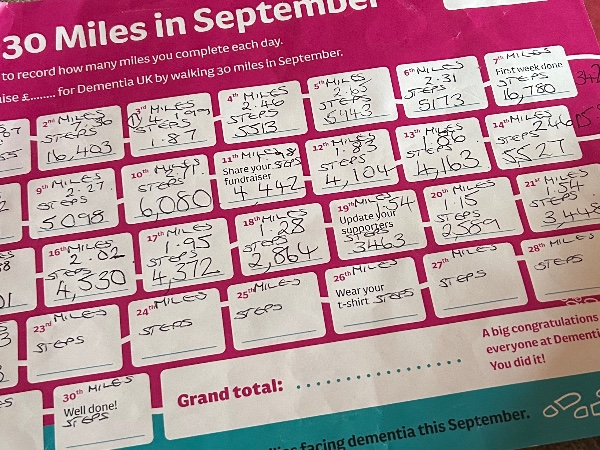 30 Miles in September
to record how many miles you complete each day.
aise £......... for Dementia UK by walking 30 miles in September.
2nd MILES
STEPS
16,403
3rd MILES
4,199
STEPS
1.87
4th MILES
2.46
STEPS
5513
5th MILES
2.65
STEPS
5943
6th MILES
2.31
STEPS
5173
7th MILES
First week done
STEPS
16,780
9th MILES
2.27
STEPS
5098
10th MILES
2.71
STEPS
6,080
11th MILES
Share your STEPS
fundraiser
4442
12th MILES
1.83
STEPS
4,104
13th MILES
1.86
STEPS
4,163
14th MILES
2.46
STEPS
5527
16th MILES
2.02
STEPS
4,530
17th MILES
1.95
STEPS
4,372
18th MILES
1.28
STEPS
2,864
19th MILES
1.54
Update your
supporters
STEPS
3463
20th MILES
1.15
STEPS
2589
21st MILES
1.54
STEPS
3448
23rd MILES
STEPS
24th MILES
STEPS
25th MILES
STEPS
26th MILES
Wear your
t-shirt STEPS
27th MILES
STEPS
28th MILES
STEPS
30th MILES
Well done!
STEPS
Grand total:
A big congratulations
everyone at Dementi
You did it!
facing dementia this September.